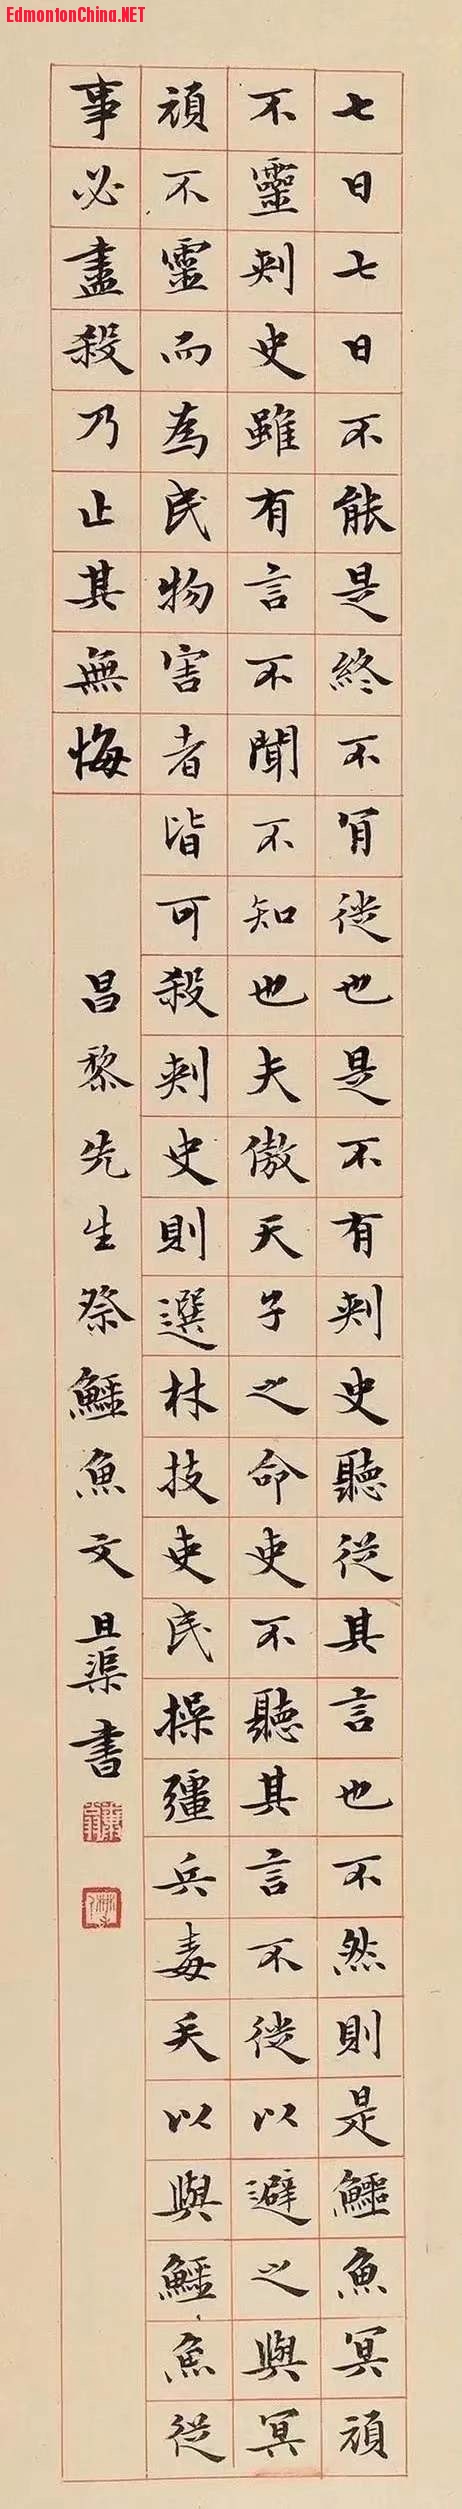 EdmontonChina.NET
七日七日不能是終不肎徙也是不有刺史聽從其言也不然則是鱷魚冥頑
不靈刺史雖有言不聞不知也夫傲天子之命吏不聽其言不徙以避之與冥
頑不靈而為民物害者皆可殺刺史則選材技吏民操彊兵毒矢以與鱷魚從
事必盡殺乃止其無悔
昌黎先生祭鱷魚文 且渠書